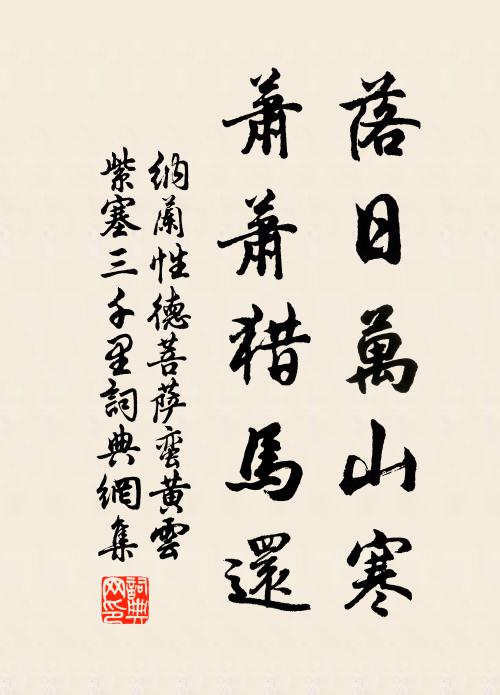 落日萬山寒
蕭蕭猎馬還
納蘭性德菩萨蛮黃雲
紫塞三千里詞典網集
詞典
网印